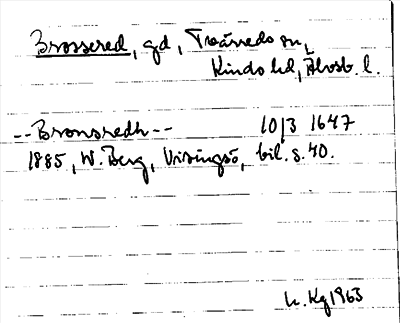 Brossered, gd, Tvärredo sn,
Kindo hd, Älvsb. l.
--Bronsredh-- 10/3 1647
1885, W. Berg, Visingsö, bil. s. 40.
Kg 1963